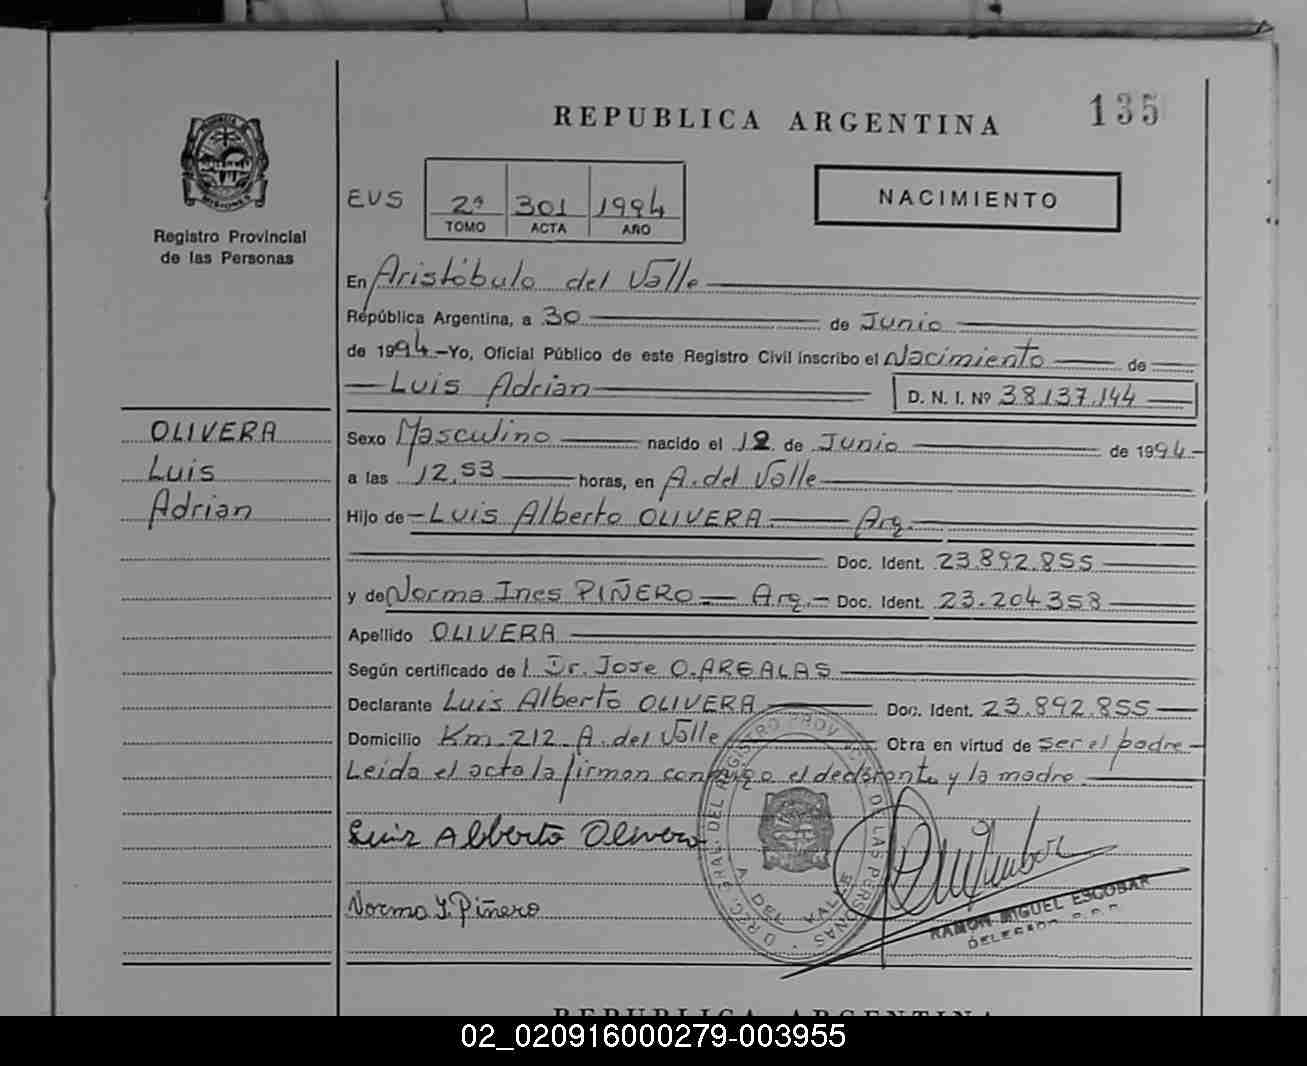 135
REPUBLICA ARGENTINA
PROVINCIA DE MISIONES
Registro Provincial
de las Personas
EVS 2ª 301 1994
TOMO ACTA AÑO
NACIMIENTO
En Aristóbulo del Valle
República Argentina, a 30 de Junio
de 1994.-Yo, Oficial Público de este Registro Civil inscribo el Nacimiento de
Luis Adrian D. N. I. Nº 38.137.144
OLIVERA
Luis
Adrian
Sexo Masculino nacido el 12 de Junio de 1994.-
a las 12,53 horas, en A. del Valle
Hijo de - Luis Alberto OLIVERA Arg.
Doc. Ident. 23.892.855
y de Norma Ines PIÑERO Arg.- Doc. Ident. 23.204358
Apellido OLIVERA
Según certificado de l Dr. Jose O. AREALAS
Declarante Luis Alberto OLIVERA Doc. Ident. 23.892.855
Domicilio Km. 212. A. del Valle Otra en virtud de ser el padre-
Leida el acta la firman conmigo el declarante y la madre.
Luis Alberto Olivera
Norma I. Piñero
A. DEL VALLE
RAMON MIGUEL ESCOBAR
REPUBLICA ARGENTINA
02_020916000279-003955